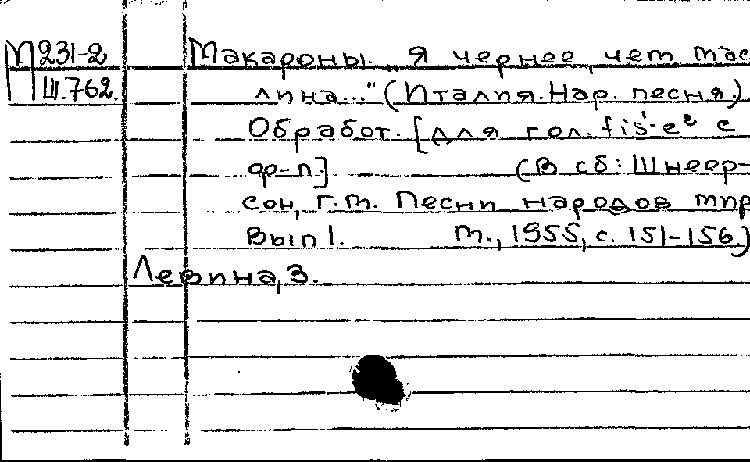 М 231-2 Макароны. „Я чернее, чем мас
Ш.762. лина..." (Италия. Нар. песня.)
Обработ. [для гол. fis'-e² с
ф-п]. (В сб: Шнеер-
сон, Г.М. Песни народов мира
Вып 1. М., 1955, с. 151-156)
Левина, З.